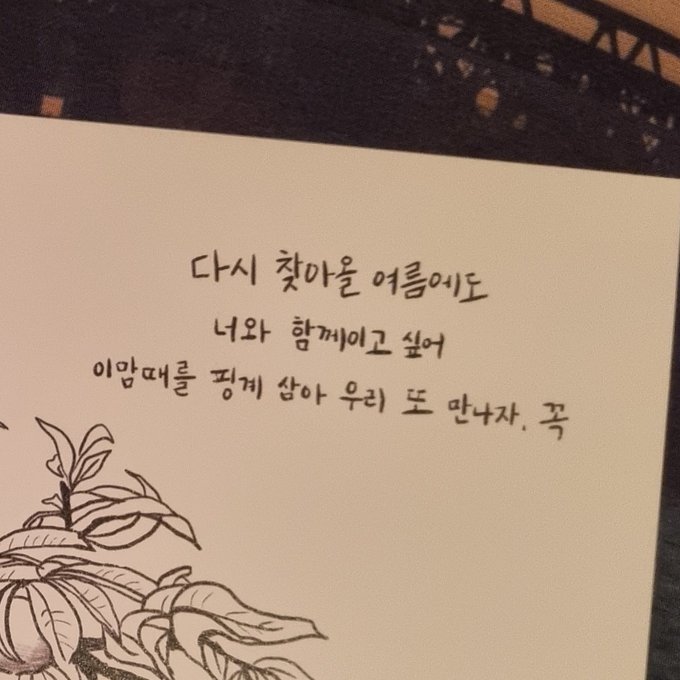 다시 찾아올 여름에도
너와 함께이고 싶어
이맘때를 핑계 삼아 우리 또 만나자. 꼭